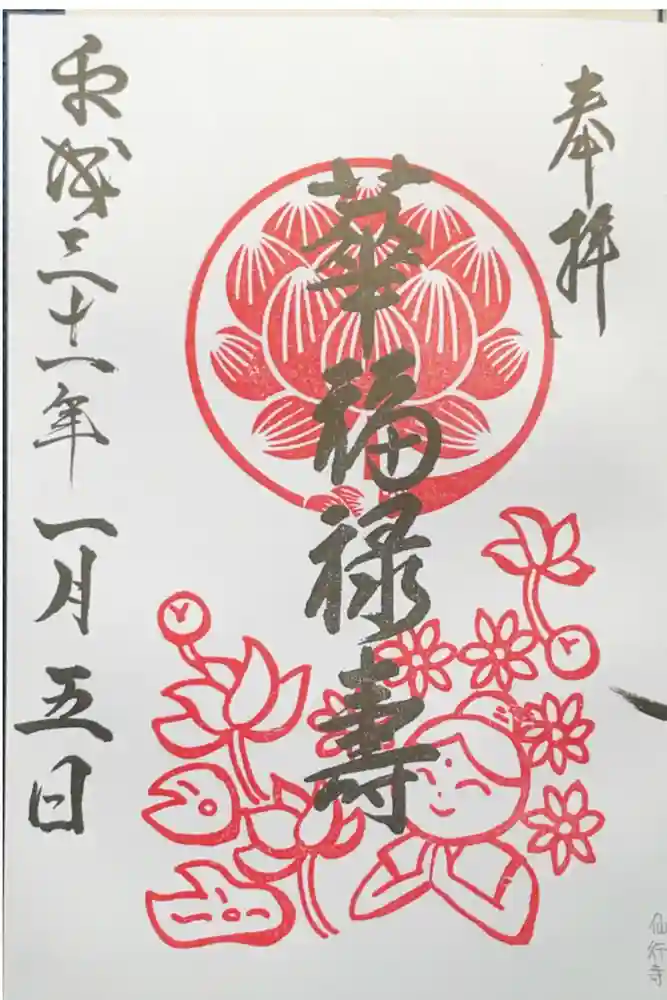 奉拝
華福禄壽
平成三十一年一月五日
仙行寺